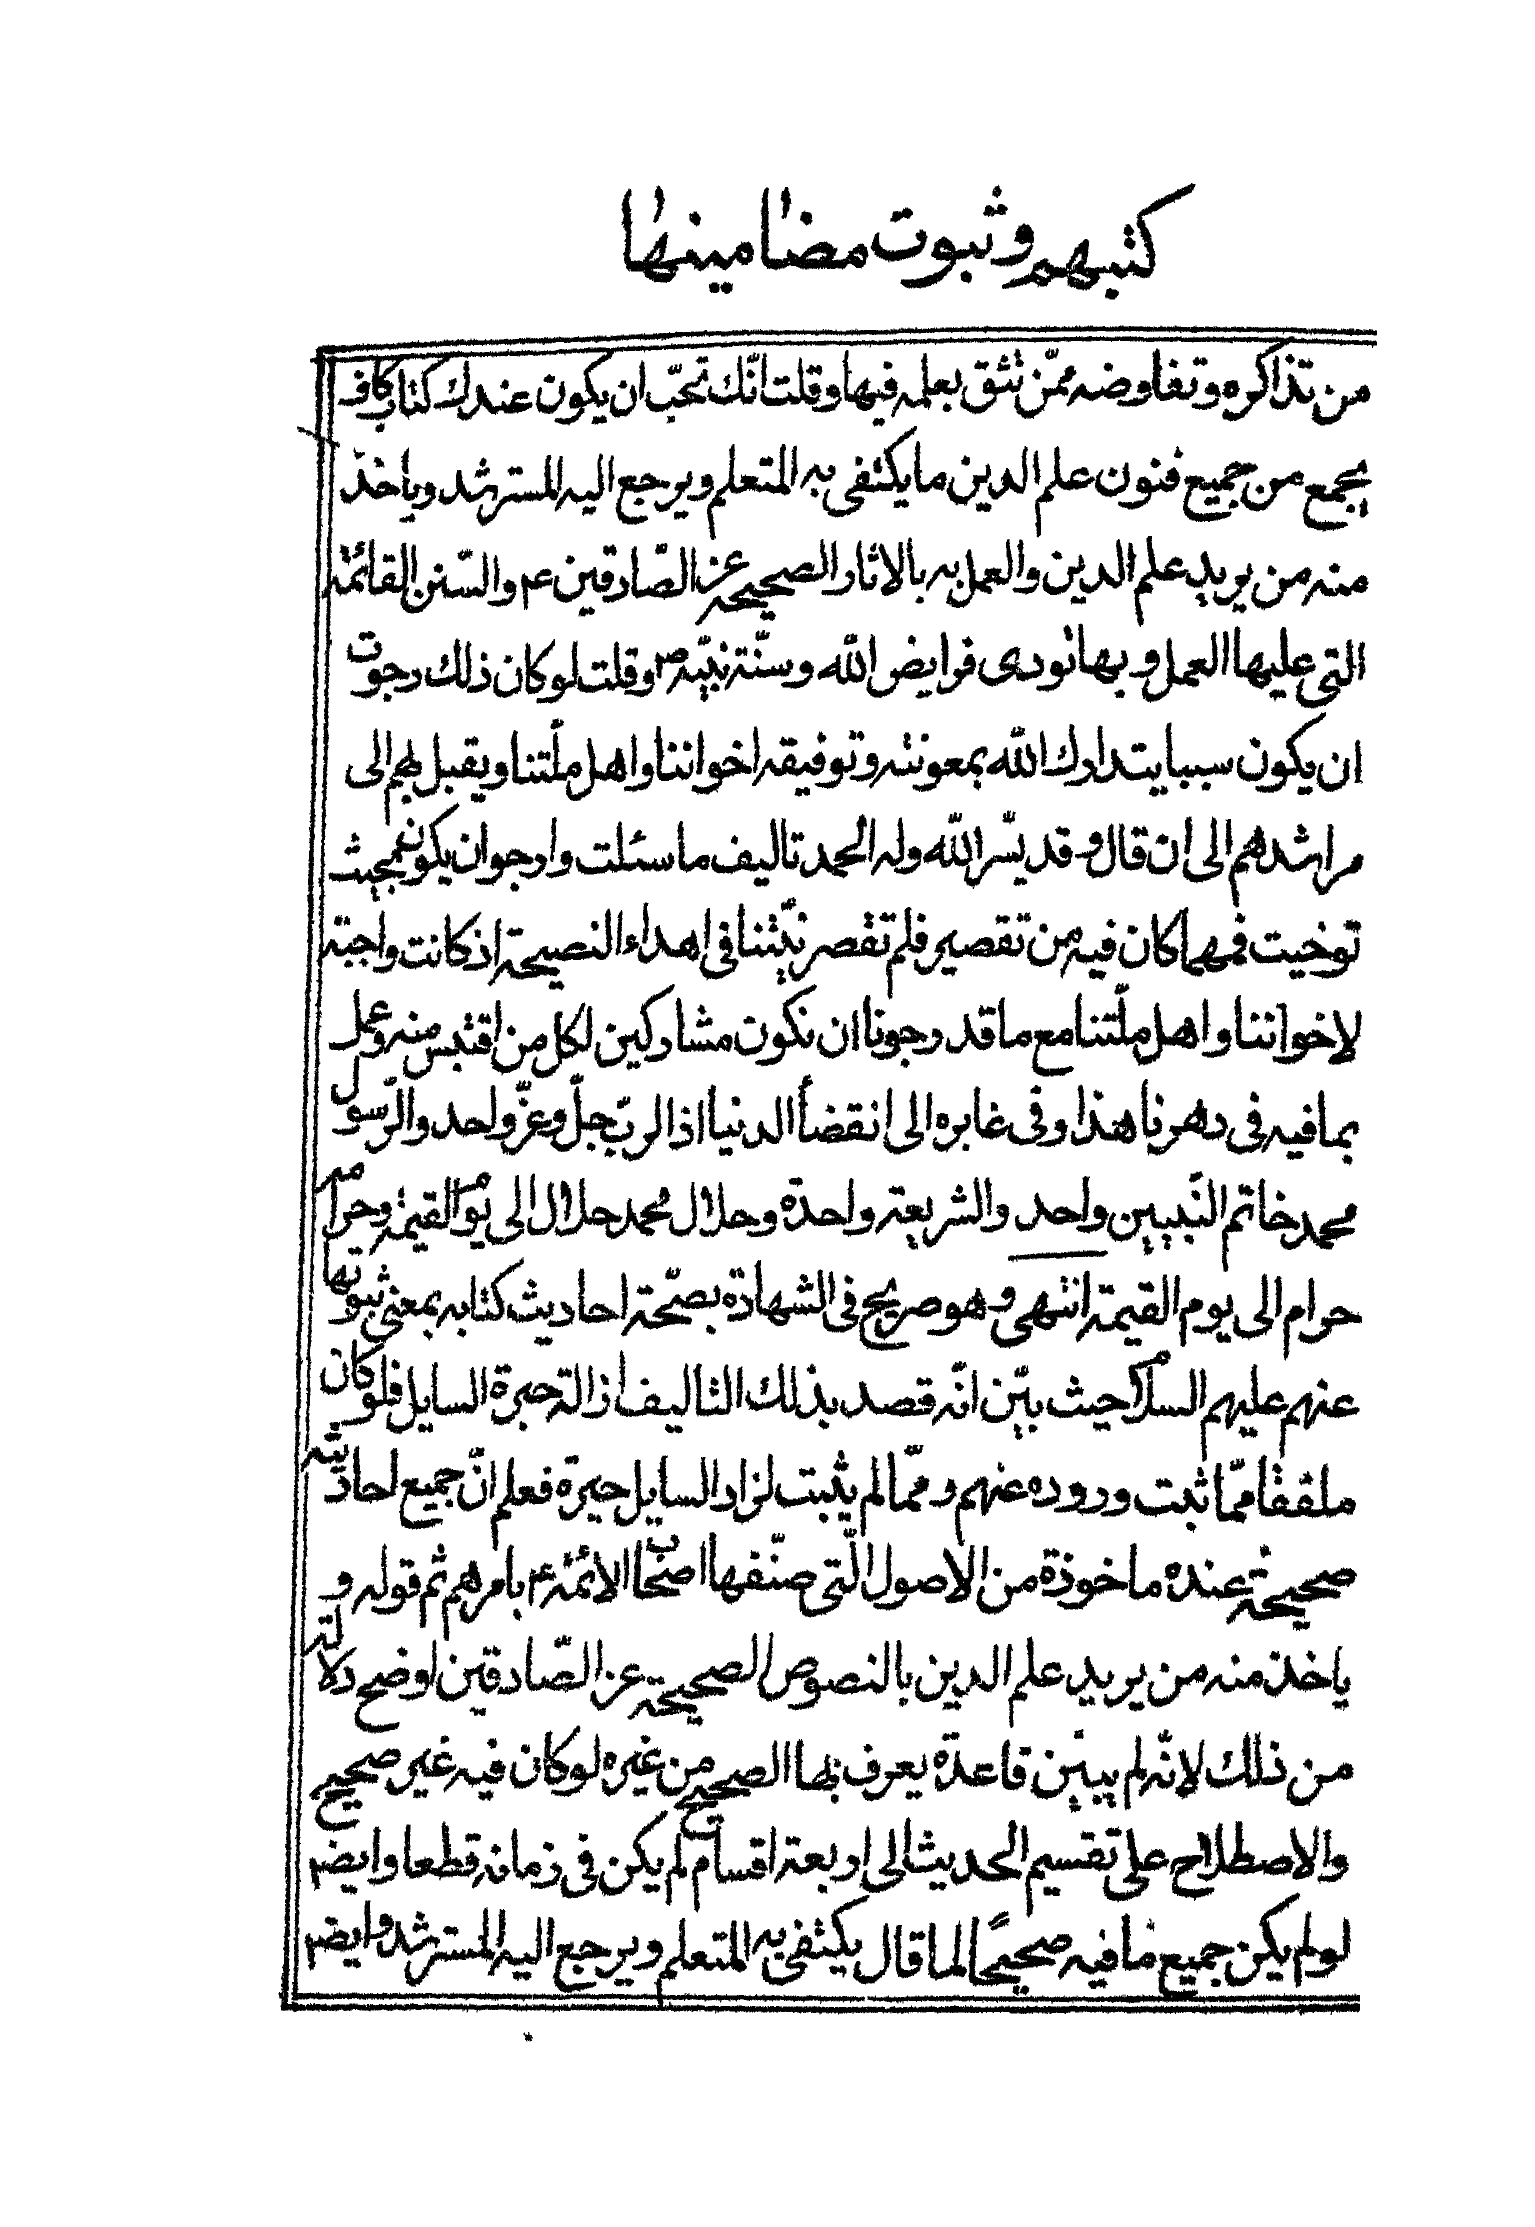 كتبهم وثبوت مضامينها
من تذاكره وتفاوضه ممّن تثق بعلمه فيها وقلت انّك تحبّ ان يكون عندك كتاب كاف
يجمع من جميع فنون علم الدين ما يكتفى به المتعلم ويرجع اليه المسترشد وياخذ
منه من يريد علم الدين والعمل به بالاثار الصحيحة عن الصّادقين ع والسّنن القائمة
التى عليها العمل وبها تودى فرايض الله وسنّة نبيّه ص وقلت لو كان ذلك رجوت
ان يكون سببا يتدارك الله بمعونته وتوفيقه اخواننا واهل ملّتنا ويقبل بهم الى
مراشدهم الى ان قال وقد يسّر الله وله الحمد تاليف ما سئلت وارجوان يكون بحيث
توخيت فمهما كان فيه من تقصير فلم تقصر نيّتنا فى اهداء النصيحة اذ كانت واجبة
لاخواننا واهل ملّتنا مع ما قد رجونا ان نكون مشاركين لكل من اقتبس منه وعمل
بما فيه فى دهرنا هذا وفى غابره الى انقضأ الدنيا اذ الربّ جلّ وعزّ واحد والرّسول
محمد خاتم النّبيين واحد والشريعة واحدة وحلال محمد حلال الى يوم القيمة وحرامه
حرام الى يوم القيمة انتهى وهو صريح فى الشهادة بصّحة احاديث كتابه بمعنى ثبوتها
عنهم عليهم السلام حيث بيّن انّه قصد بذلك التاليف ازالة حيرة السايل فلو كان
ملفقا ممّا ثبت وروده عنهم وممّا لم يثبت لزاد السايل حيرة فعلم انّ جميع احاديثه
صحيحة عنده ماخوذة من الاصول الّتى صنّفها اصحاب الائمة ع بامرهم ثم قوله و
ياخذ منه من يريد علم الدين بالنصوص الصحيحة عن الصّادقين اوضح دلالة
من ذلك لانّه لم يبيّن قاعدة يعرف بها الصحيح من غيره لو كان فيه غير صحيح
والاصطلاح على تقسيم الحديث الى اربعة اقسام لم يكن فى زمانه قطعا وايضا
لو لم يكن جميع ما فيه صحيحًا لما قال يكتفى به المتعلم ويرجع اليه المسترشد وايضا